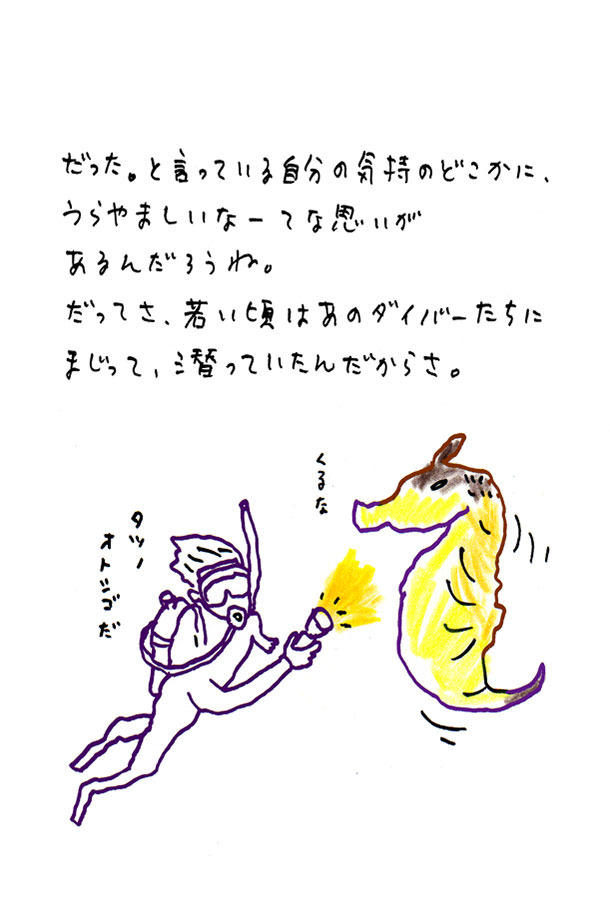 だった。と言っている自分の気持のどこかに、
うらやましいなーてな思いが
あるんだろうね。
だってさ、若い頃はあのダイバーたちに
まじって、潜っていたんだからさ。
くるな
タツノ
オトシゴだ